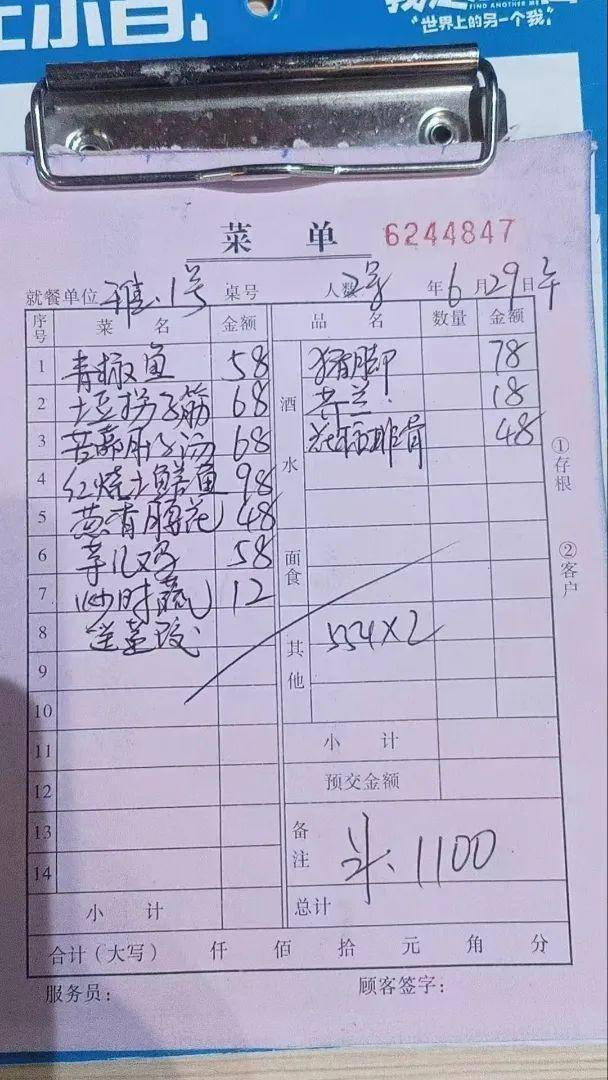 FIND ANOTHER ME
世界上的另一个我
菜 单 6244847
就餐单位 雅.1号 桌号 人数 2号 年 6 月 29 日 午
序号 菜 名 金额 品 名 数量 金额
1 青椒鱼 58 猪脚 78
2 土豆拐子筋 68 酒 18
3 68 水 排骨 48
4 红烧土鲜鱼 98
5 葱香腰花 48
6 58 面食
7 炒时蔬 12
8 554×2
9 其他
10
11 小 计
12 预交金额
13 备注 1100
14
小 计 总计
合计(大写) 仟 佰 拾 元 角 分
服务员: 顾客签字:
①存根
②客户